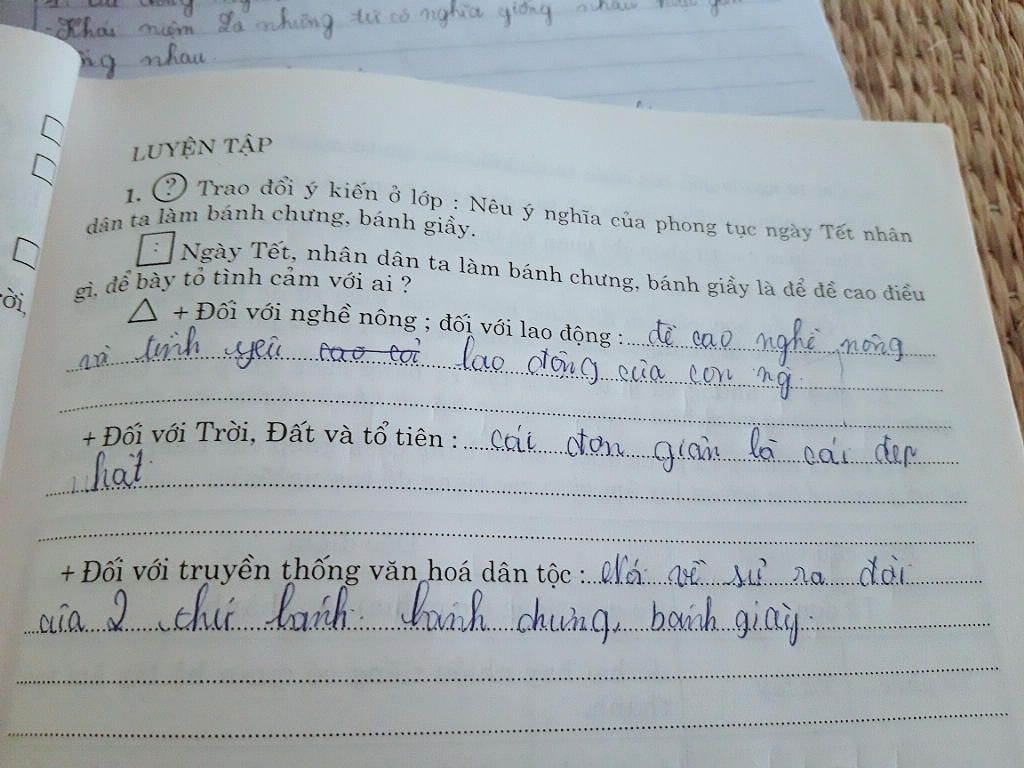 -Khái niệm Là những từ có nghĩa giống nhau
nhau
LUYỆN TẬP
1. ? Trao đổi ý kiến ở lớp : Nêu ý nghĩa của phong tục ngày Tết nhân
dân ta làm bánh chưng, bánh giầy.
: Ngày Tết, nhân dân ta làm bánh chưng, bánh giầy là để đề cao điều
gì, để bày tỏ tình cảm với ai ?
+ Đối với nghề nông ; đối với lao động : đề cao nghề nông
và tình yêu lao động của con ng
+ Đối với Trời, Đất và tổ tiên : cái đơn giản là cái đẹp
nhất
+ Đối với truyền thống văn hoá dân tộc : Nói về sự ra đời
của 2 thứ bánh bánh chưng, bánh giày.